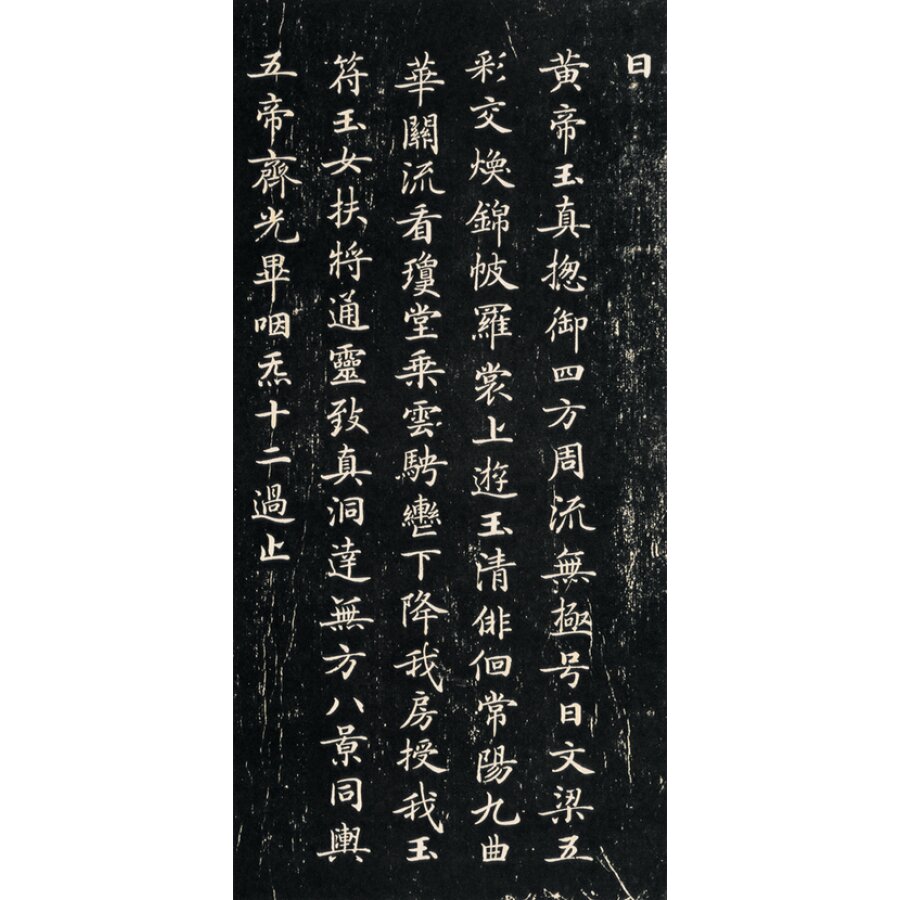 曰
黃帝玉真揔御四方周流無極号曰文梁五
彩交煥錦帔羅裳上遊玉清俳佪常陽九曲
華關流看瓊堂乘雲駚轡下降我房授我玉
符玉女扶將通靈致真洞達無方八景同輿
五帝齊光畢咽炁十二過止